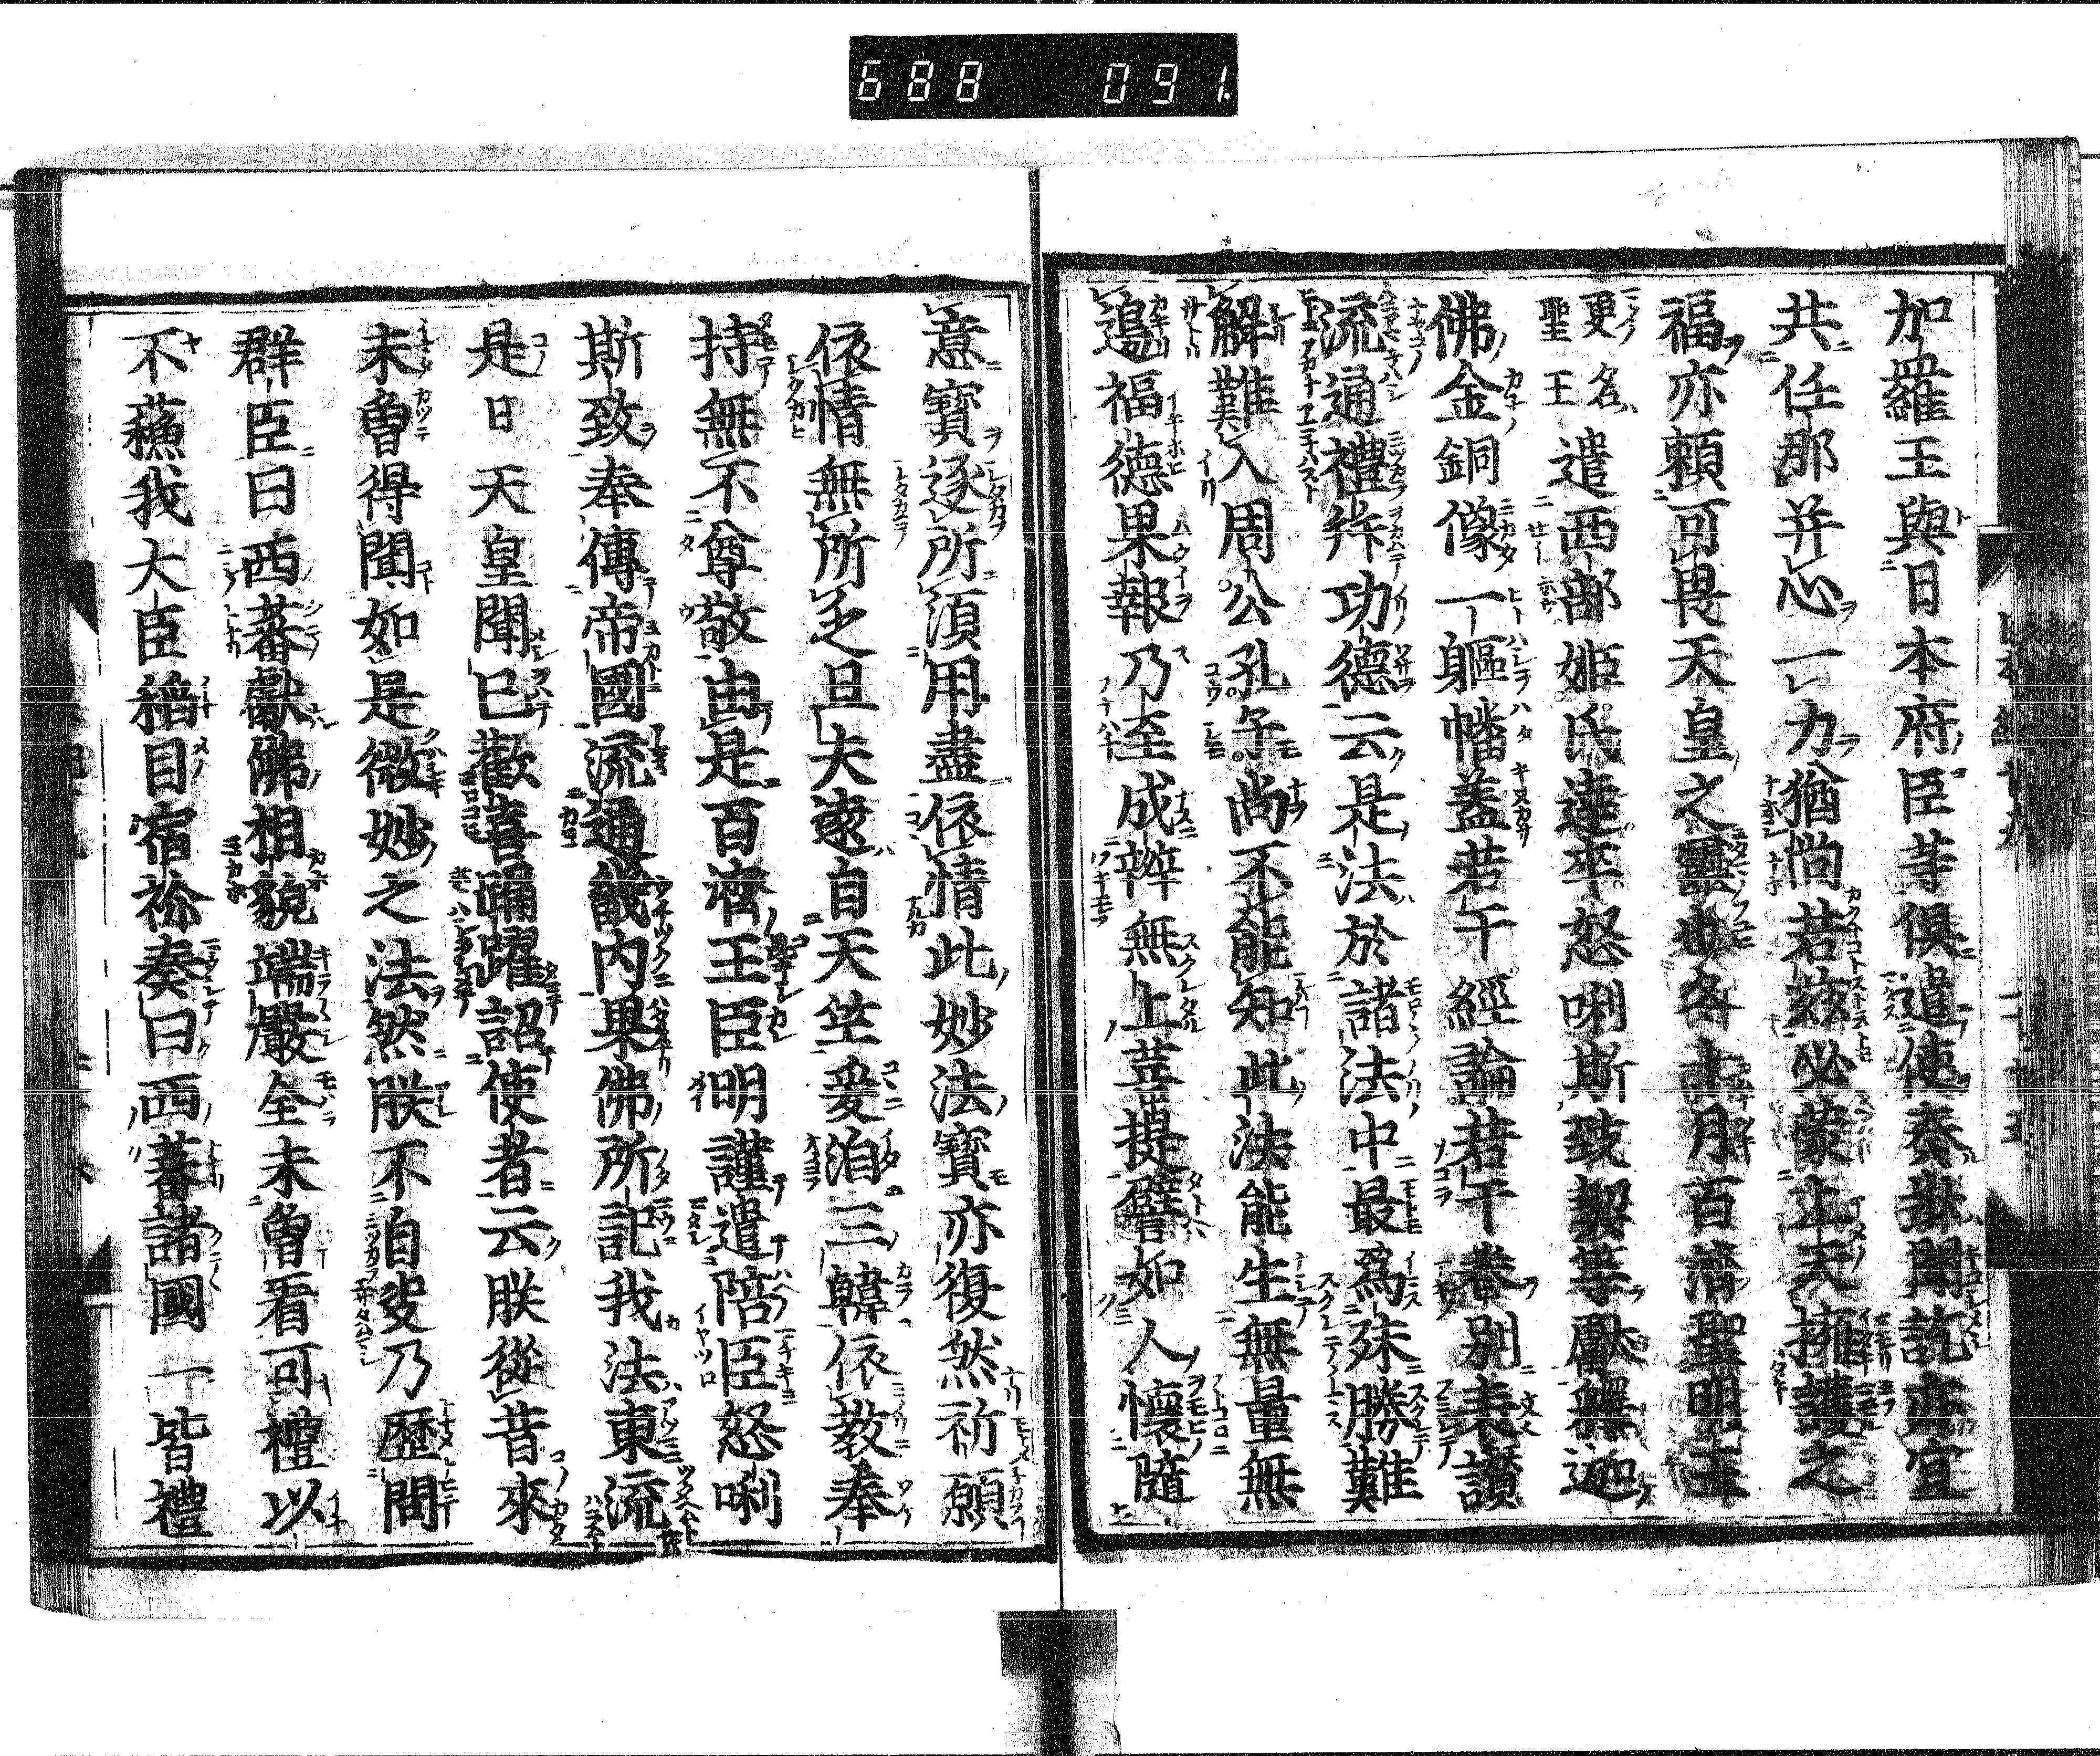 688 091.
加羅王與日本府臣等俱遣使奏狀聞訖亦宜
共任那并心一力猶尚若茲必蒙上天擁護之
福亦賴可畏天皇之靈也冬十月百濟聖明王
更名聖王遣西部姬氏達率怒唎斯致契等獻釋迦
佛金銅像一軀幡蓋若干經論若干卷別表讚
流通禮拜功德云是法於諸法中最爲殊勝難
解難入周公孔子尚不能知此法能生無量無
邊福德果報乃至成辨無上菩提譬如人懷隨
意寶逐所須用盡依情此妙法寶亦復然祈願
依情無所乏且夫遠自天竺爰洎三韓依教奉
持無不尊敬由是百濟王臣明謹遣陪臣怒唎
斯致奉傳帝國流通畿內果佛所記我法東流
是日天皇聞已歡喜踊躍詔使者云朕從昔來
未曾得聞如是微妙之法然朕不自決乃歷問
群臣曰西蕃獻佛相貌端嚴全未曾看可禮以
不蘇我大臣稻目宿祢奏曰西蕃諸國一皆禮